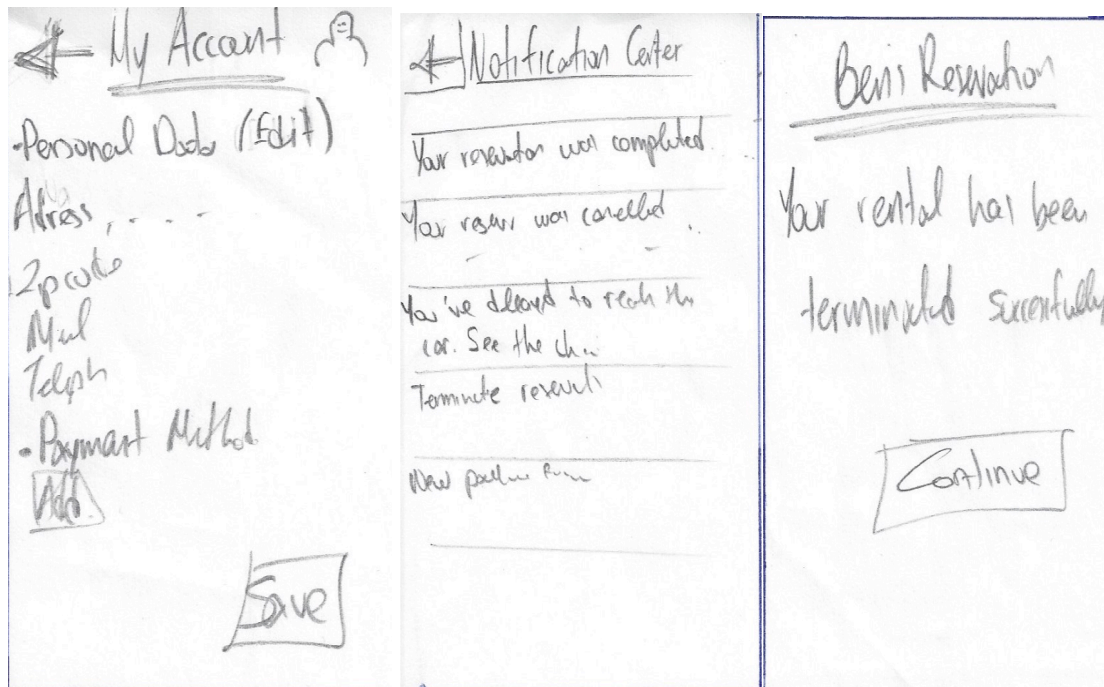 My Account
-Personal Data (Edit)
Adress
Zpcode
Mail
Teleph
• Payment Method
Add
Save
Notification Center
Your reservation was completed
Your reserv was cancelled
You've delayed to reach the
car. See the
Terminate
New
Beni Reservation
Your rental has been
terminated succesfully
Continue